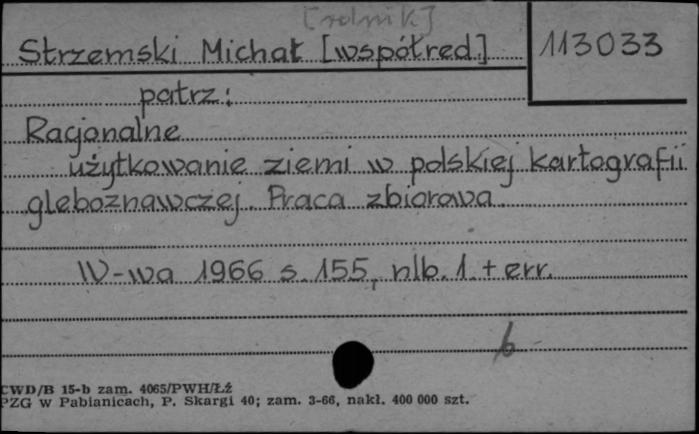 [rolnik]
Strzemski Michał [współred.] 113033
patrz:
Racjonalne
użytkowanie ziemi w polskiej kartografii
gleboznawczej. Praca zbiorowa
W-wa 1966 s. 155, nlb. 1. + err.
b
CWD/B 15-b zam. 4065/PWH/ŁŻ
PZG w Pabianicach, P. Skargi 40; zam. 3-66, nakł. 400 000 szt.